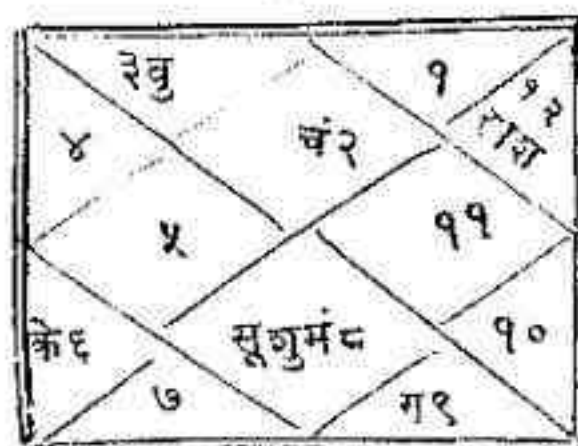 ३वु
१
१२
राश
४
चं२
५
११
के६
सूशुमं८
१०
७
ग९